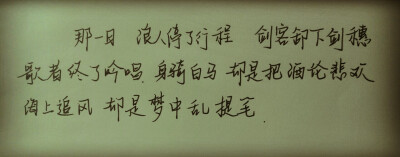 那一日 浪人停了行程 剑客卸下剑穗
歌者终了吟唱 身骑白马 却是把酒论悲欢
海上追风 却是梦中乱提笔